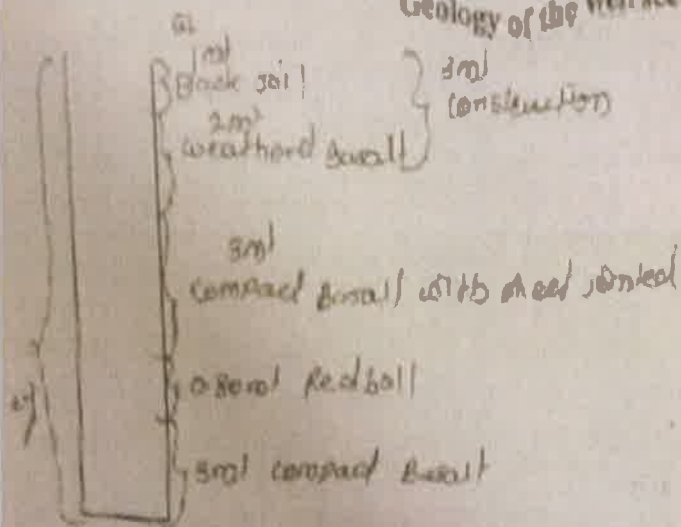 Geology of the
1ml
Black soil
2ml
weatherd Basalt
3ml
construction
3ml
compact Basalt with jointed
0.80ml Redball
3ml compact Basalt